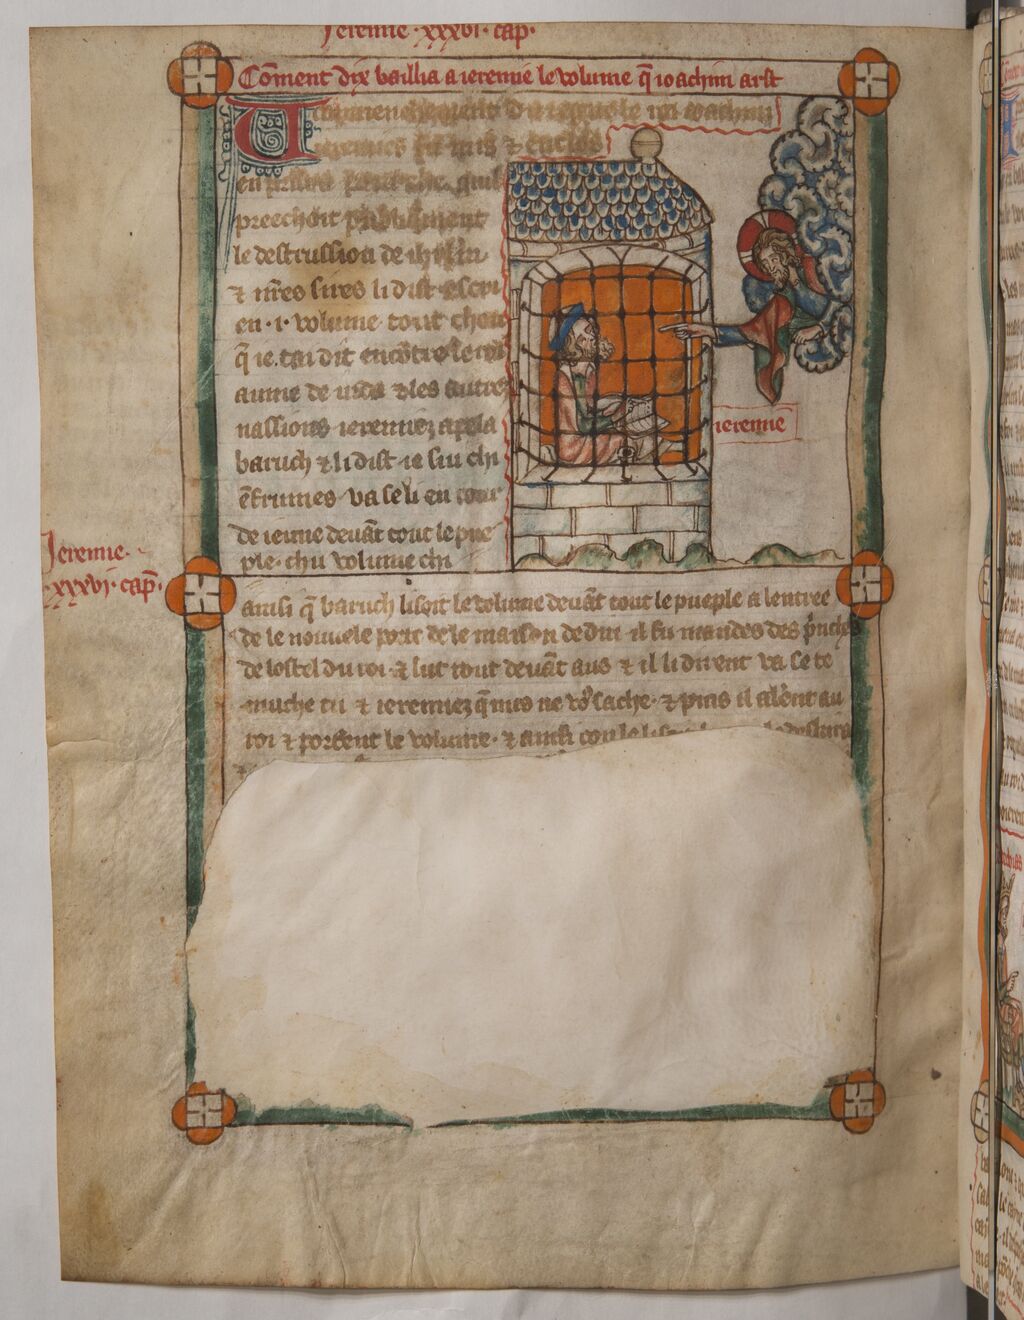 Jeremie · xxxvi · cap̄ ·
Cōment dix bailla a ieremie le volume q̄ ioachim arst
commenchement du regne le roi ioachim
ieremies fu mis & enclos
en prison pour che quil
preechoit publiquement
le destrussion de ihrl̄m
& nr̄es sires li dist escri
en · i · volume tout chou
q̄ ie tai dit encōtre le roi
aume de iuda & les autres
nassions ieremiez apela
baruch & li dist ie sui chi
ēfrumes va se li en iour
de ieune deuāt tout le pue
ple · chu volume chi
ieremie
Jeremie ·
xxxvi · cap̄ ·
ainsi q̄ baruch lisoit le volume deuāt tout le pueple a lentree
de le nouuele porte de le maison dediu il fu mandes des p̄nches
de lostel du roi & lut tout deuāt aus & il li dirent va se te
muche tu & ieremiez q̄ nus ne vo' sache · & puis il alerēt au
roi & porterent le volume · & ainsi con le